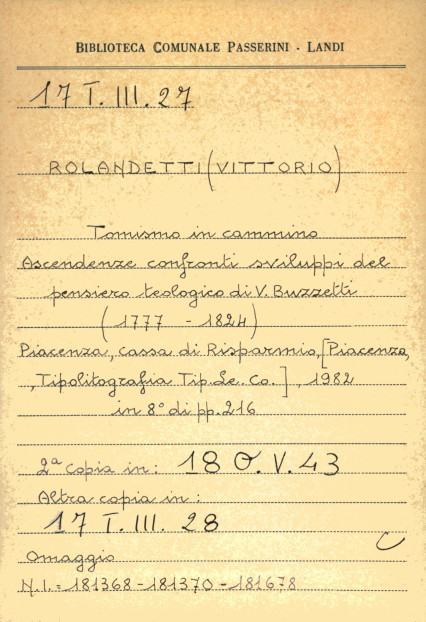 BIBLIOTECA COMUNALE PASSERINI - LANDI
17 T. III. 27
ROLANDETTI (VITTORIO)
Tomismo in cammino
Ascendenze confronti sviluppi del
pensiero teologico di V. Buzzetti
(1777 - 1824)
Piacenza, Cassa di Risparmio, [Piacenza,
, Tipolitografia Tip. Le. Co. ] , 1982
in 8° di pp. 216
2ª copia in : 18 O. V. 43
Altra copia in :
17 T. III. 28
Omaggio
N. I. = 181368 - 181370 - 181678